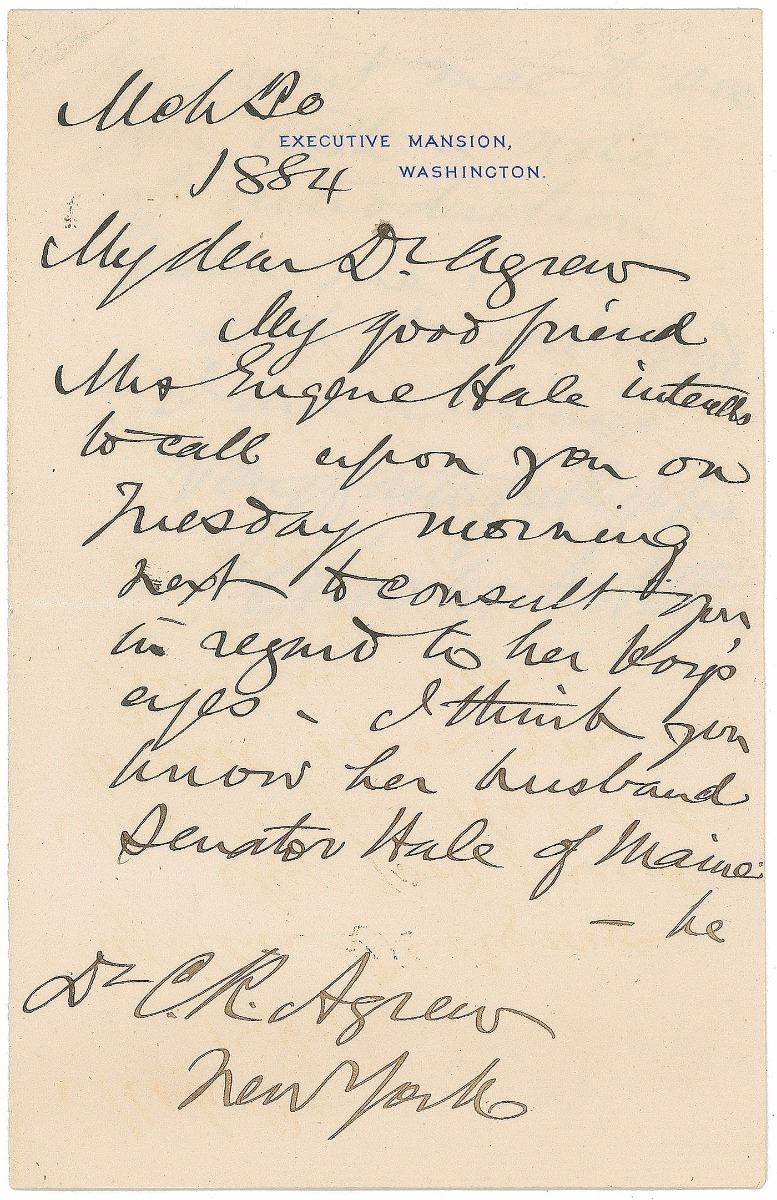 Mch 20
EXECUTIVE MANSION,
1884 WASHINGTON.
My dear Dr Agnew
My good friend
Mrs Eugene Hale intends
to call upon you on
Tuesday morning
next to consult you
in regard to her boy's
eyes - I think you
know her husband
Senator Hale of Maine
- he
Dr C.R. Agnew
New York